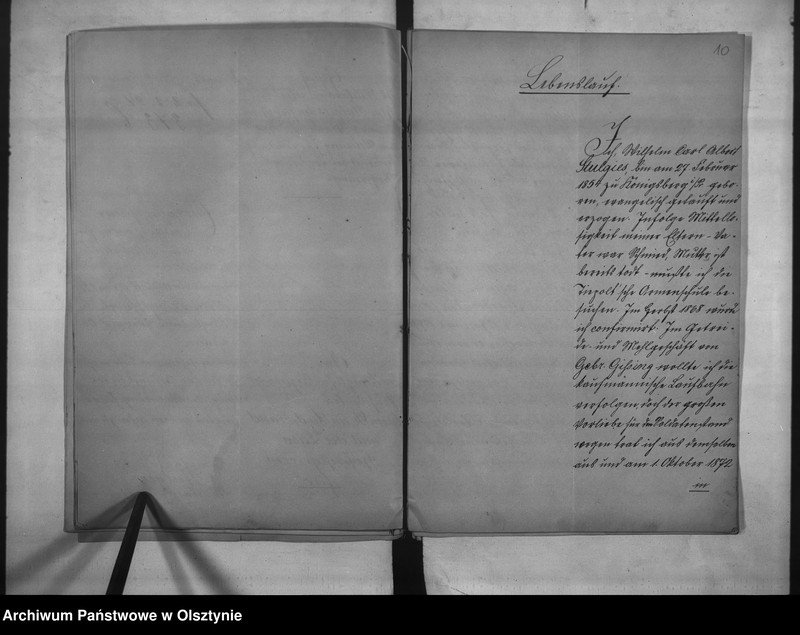 10
Lebenslauf.
Ich, Wilhelm Carl Albert
bin am 27 Februar
zu Königsberg i/P gebo-
ren, evangelisch getauft und
erzogen. Infolge Mittello-
sigkeit meiner Eltern - Va-
ter war Schmied, Mutter ist
bereits todt - mußte ich die
Tiepolt'sche Armenschule be-
suchen. Im Herbst 1868 wurde
ich confirmirt. Im Getrei-
de- und Mehlgeschäft von
Gebr. wollte ich die
kaufmännische Laufbahn
verfolgen, doch der großen
Vorliebe für den Soldatenstand
wegen trat ich aus demselben
aus und am 1. Oktober 1872
in
Archiwum Państwowe w Olsztynie